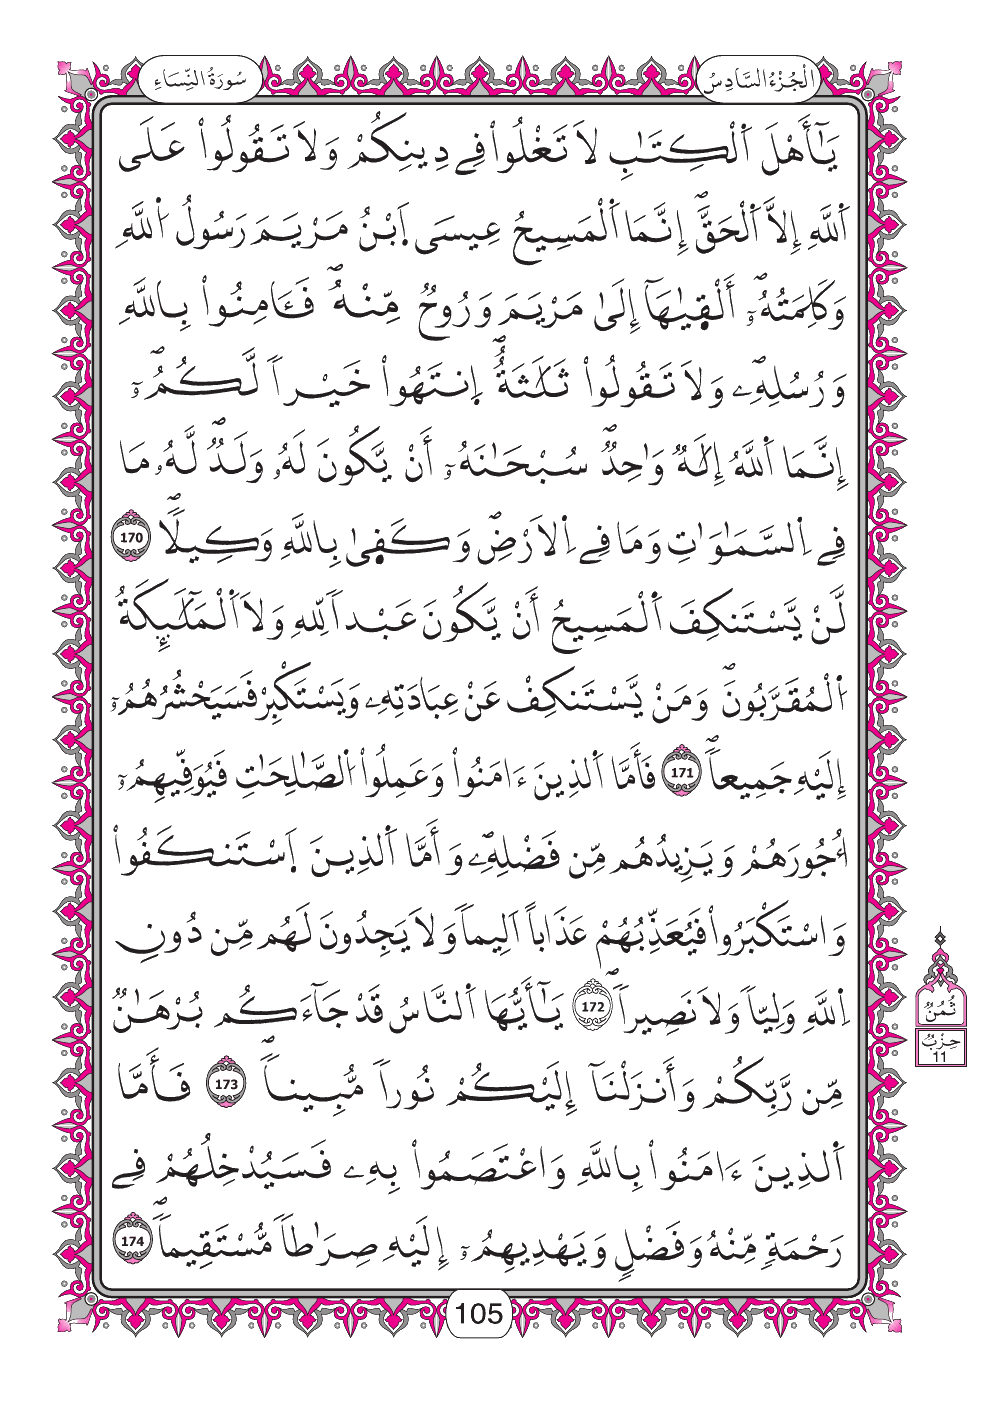 الْجُزْءُ السَّادِسُ
سُورَةُ النِّسَاءِ
يَـٰٓأَهْلَ اَ۬لْكِتَـٰبِ لَا تَغْلُواْ فِے دِينِكُمْ وَلَا تَقُولُواْ عَلَى
اَ۬للَّهِ إِلَّا اَ۬لْحَقَّۖ إِنَّمَا اَ۬لْمَسِيحُ عِيسَى اَ۪بْنُ مَرْيَمَ رَسُولُ اُ۬للَّهِ
وَكَلِمَتُهُۥٓۖ أَلْقٜيٰهَآ إِلَىٰ مَرْيَمَ وَرُوحٌ مِّنْهُۖ فَـَٔامِنُواْ بِاللَّهِ
وَرُسُلِهِۦۖ وَلَا تَقُولُواْ ثَلَـٰثَةٌۖ اِ۪نتَهُواْ خَيْراً لَّكُمُۥٓۖ
إِنَّمَا اَ۬للَّهُ إِلَـٰهٌ وَٰحِدٌۖ سُبْحَـٰنَهُۥٓ أَنْ يَّكُونَ لَهُۥ وَلَدٌۖ لَّهُۥ مَا
فِے اِ۬لسَّمَـٰوَٰتِ وَمَا فِے اِ۬لَارْضِۖ وَكَفٜىٰ بِاللَّهِ وَكِيلًاۖ 170
لَّنْ يَّسْتَنكِفَ اَ۬لْمَسِيحُ أَنْ يَّكُونَ عَبْداً لِّلهِ وَلَا اَ۬لْمَلَـٰٓئِكَةُ
اُ۬لْمُقَرَّبُونَۖ وَمَنْ يَّسْتَنكِفْ عَنْ عِبَادَتِهِۦ وَيَسْتَكْبِرْ فَسَيَحْشُرُهُمُۥٓ
إِلَيْهِ جَمِيعاًۖ 171 فَأَمَّا اَ۬لذِينَ ءَامَنُواْ وَعَمِلُواْ اُ۬لصَّـٰلِحَـٰتِ فَيُوَفِّيهِمُۥٓ
أُجُورَهُمْ وَيَزِيدُهُم مِّن فَضْلِهِۦۖ وَأَمَّا اَ۬لذِينَ اَ۪سْتَنكَفُواْ
وَاسْتَكْبَرُواْ فَيُعَذِّبُهُمْ عَذَاباً اَلِيماً وَلَا يَجِدُونَ لَهُم مِّن دُونِ
اِ۬للَّهِ وَلِيّاً وَلَا نَصِيراًۖ 172 يَـٰٓأَيُّهَا اَ۬لنَّاسُ قَدْ جَآءَكُم بُرْهَـٰنٌ
مِّن رَّبِّكُمْ وَأَنزَلْنَآ إِلَيْكُمْ نُوراً مُّبِيناًۖ 173 فَأَمَّا
اَ۬لذِينَ ءَامَنُواْ بِاللَّهِ وَاعْتَصَمُواْ بِهِۦ فَسَيُدْخِلُهُمْ فِے
رَحْمَةٍ مِّنْهُ وَفَضْلٍ وَيَهْدِيهِمُۥٓ إِلَيْهِ صِرَٰطاً مُّسْتَقِيماًۖ 174
ثُمُنٌ
حِزْبُ
11
105